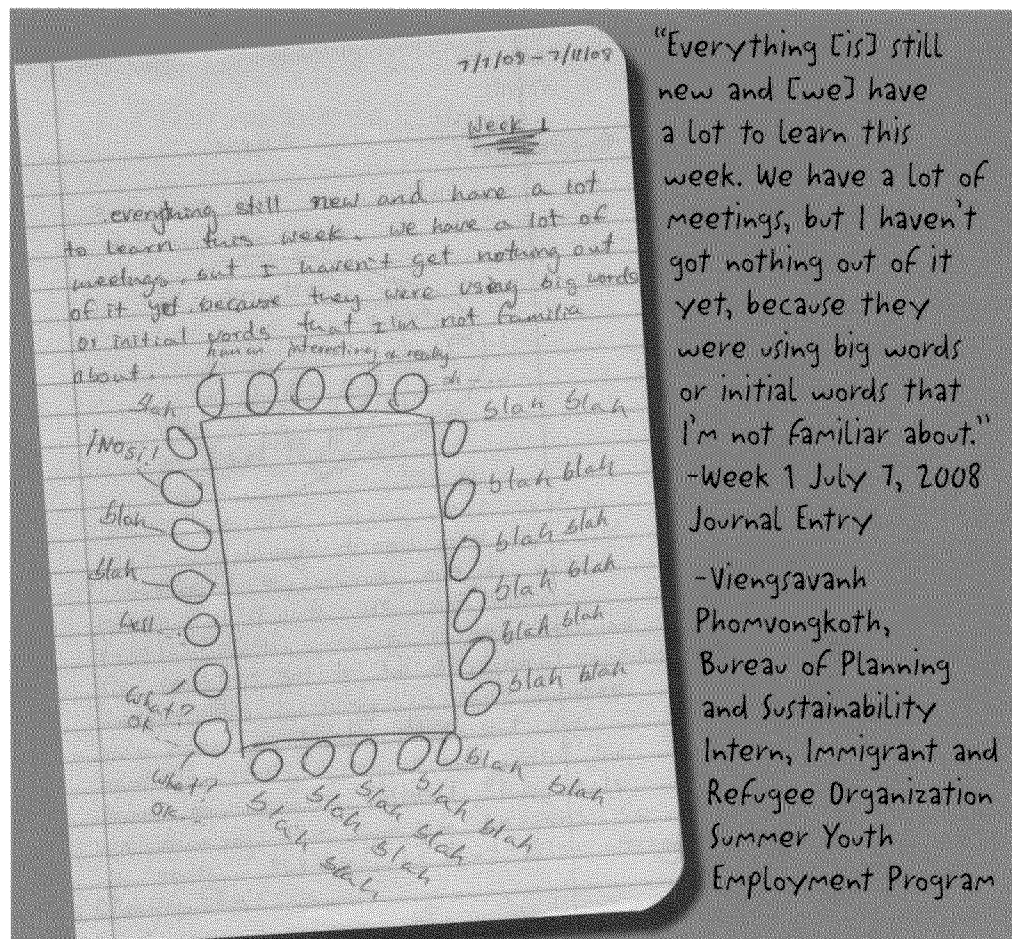 7/7/08 - 7/11/08
Week 1
everything still new and have a lot
to learn this week. we have a lot of
meetings, but I haven't get nothing out
of it yet because they were using big words
or initial words that I'm not familia
about.
human interesting really
oh...
blah
¡No si!!
blah
blah
well..
What?
OK
What?
OK
blah blah
blah blah
blah blah
blah blah
blah blah
blah blah
blah blah
blah blah
blah blah
blah blah
blah blah
"Everything [is] still
new and [we] have
a lot to learn this
week. We have a lot of
meetings, but I haven't
got nothing out of it
yet, because they
were using big words
or initial words that
I'm not familiar about."
-Week 1 July 7, 2008
Journal Entry
-Viengsavanh
Phomvongkoth,
Bureau of Planning
and Sustainability
Intern, Immigrant and
Refugee Organization
Summer Youth
Employment Program